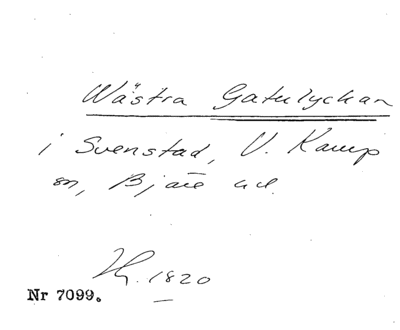 Wästra Gatulyckan
i Svenstad, V. Karup
sn, Bjäre hd.
1820
Nr 7099.